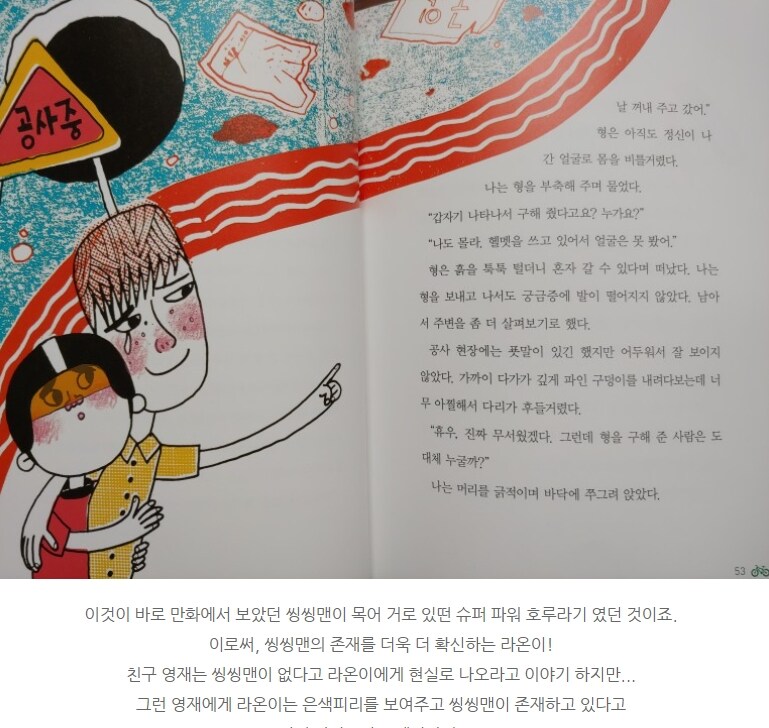 공사중
날 꺼내 주고 갔어.”
형은 아직도 정신이 나
간 얼굴로 몸을 비틀거렸다.
나는 형을 부축해 주며 물었다.
“갑자기 나타나서 구해 줬다고요? 누가요?”
“나도 몰라. 헬멧을 쓰고 있어서 얼굴은 못 봤어.”
형은 흙을 툭툭 털더니 혼자 갈 수 있다며 떠났다. 나는
형을 보내고 나서도 궁금증에 발이 떨어지지 않았다. 남아
서 주변을 좀 더 살펴보기로 했다.
공사 현장에는 푯말이 있긴 했지만 어두워서 잘 보이지
않았다. 가까이 다가가 깊게 파인 구덩이를 내려다보는데 너
무 아찔해서 다리가 후들거렸다.
“휴우, 진짜 무서웠겠다. 그런데 형을 구해 준 사람은 도
대체 누굴까?”
나는 머리를 긁적이며 바닥에 쭈그려 앉았다.
53
이것이 바로 만화에서 보았던 씽씽맨이 목어 거로 있떤 슈퍼 파워 호루라기 였던 것이죠.
이로써, 씽씽맨의 존재를 더욱 더 확신하는 라온이!
친구 영재는 씽씽맨이 없다고 라온이에게 현실로 나오라고 이야기 하지만...
그런 영재에게 라온이는 은색피리를 보여주고 씽씽맨이 존재하고 있다고